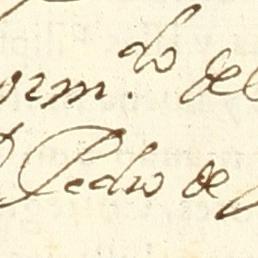 orm.do de
Pedro de